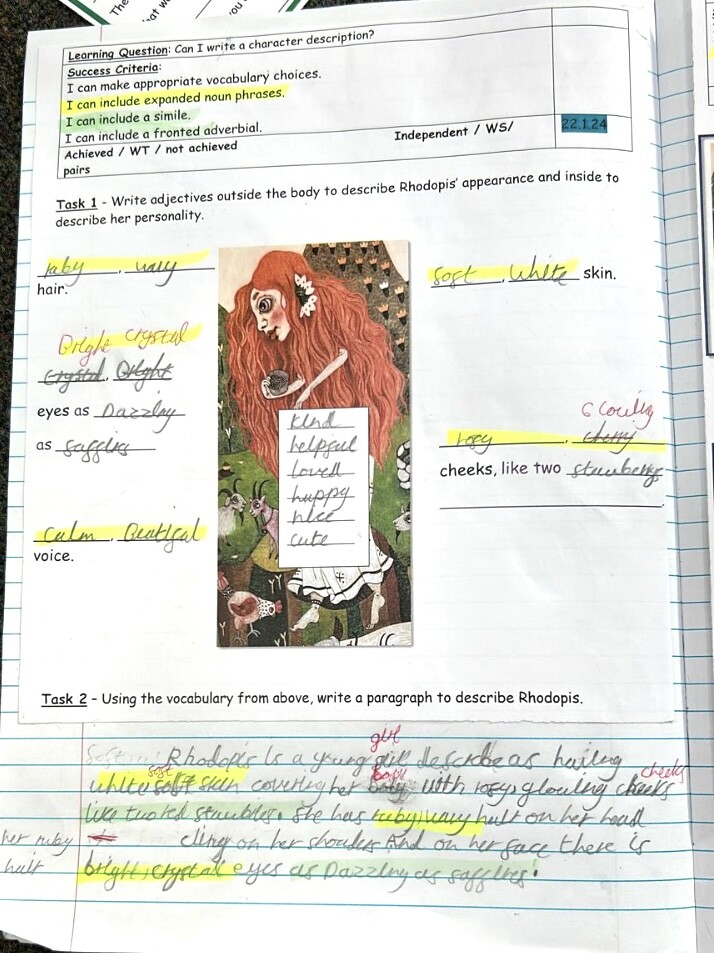 The
hat w
you
Learning Question: Can I write a character description?
Success Criteria:
I can make appropriate vocabulary choices.
I can include expanded noun phrases.
I can include a simile.
I can include a fronted adverbial.
Achieved / WT / not achieved Independent / WS/
pairs
22.1.24
Task 1 - Write adjectives outside the body to describe Rhodopis' appearance and inside to
describe her personality.
ruby, wavy
hair.
soft, White skin.
Bright crystal
crystal, Bright
eyes as Dazzlny
as saffires
Glowing
rosy, cherry
cheeks, like two
calm, Beatifal
voice.
kind
helpful
lovell
happy
nice
cute
Task 2 - Using the vocabulary from above, write a paragraph to describe Rhodopis.
girl
Rhodopis Is a young describe as having
soft body cheeks
white soft skin covering her body with rosy, glowing cheeks
like two red. She has ruby, wavy on her head
her ruby cling on her shoulders And on her face there is
bright, crystal eyes as Dazzlny as saffires.